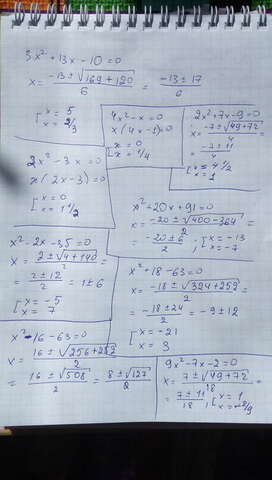 3x² + 13x - 10 = 0
x = (-13 ± √(169 + 120))/6 = (-13 ± 17)/6
[x = 5
x = 2/3
4x² - x = 0
x(4x - 1) = 0
[x = 0
x = 1/4
2x² + 7x - 9 = 0
x = (-7 ± √(49 + 72))/4 =
= (-7 ± 11)/4
[x = 4 1/2
x = 1
2x² - 3x = 0
x(2x - 3) = 0
[x = 0
x = 1 1/2
x² + 20x + 91 = 0
x = (-20 ± √(400 - 364))/2 =
= (-20 ± 6)/2; [x = -13
x = -7
x² - 2x - 35 = 0
x = (2 ± √(4 + 140))/2 =
= (2 ± 12)/2 = 1 ± 6
[x = -5
x = 7
x² + 18 - 63 = 0
x = (-18 ± √(324 + 252))/2 =
= (-18 ± 24)/2 = -9 ± 12
[x = -21
x = 3
x² - 16 - 63 = 0
x = (16 ± √(256 + 252))/2 =
= (16 ± √508)/2 = (8 ± √127)/2
9x² - 7x - 2 = 0
x = (7 ± √(49 + 72))/18 =
= (7 ± 11)/18; [x = 1
x = -2/9